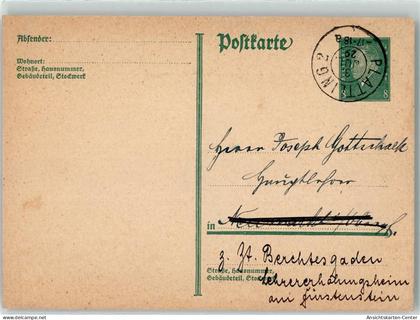 Absender:
Wohnort:
Straße, Hausnummer,
Gebäudeteil, Stockwerk
Postkarte
PLATTLING 2
29
17-18
8
Herrn Joseph Gottschalk
Hauptlehrer
in
z. Zt. Berchtesgaden
Straße, Hausnummer,
Gebäudeteil, Stockwerk
Lehrererholungsheim
am Fürstenstein
www.ansichtskarten-center.de
Ansichtskarten-Center